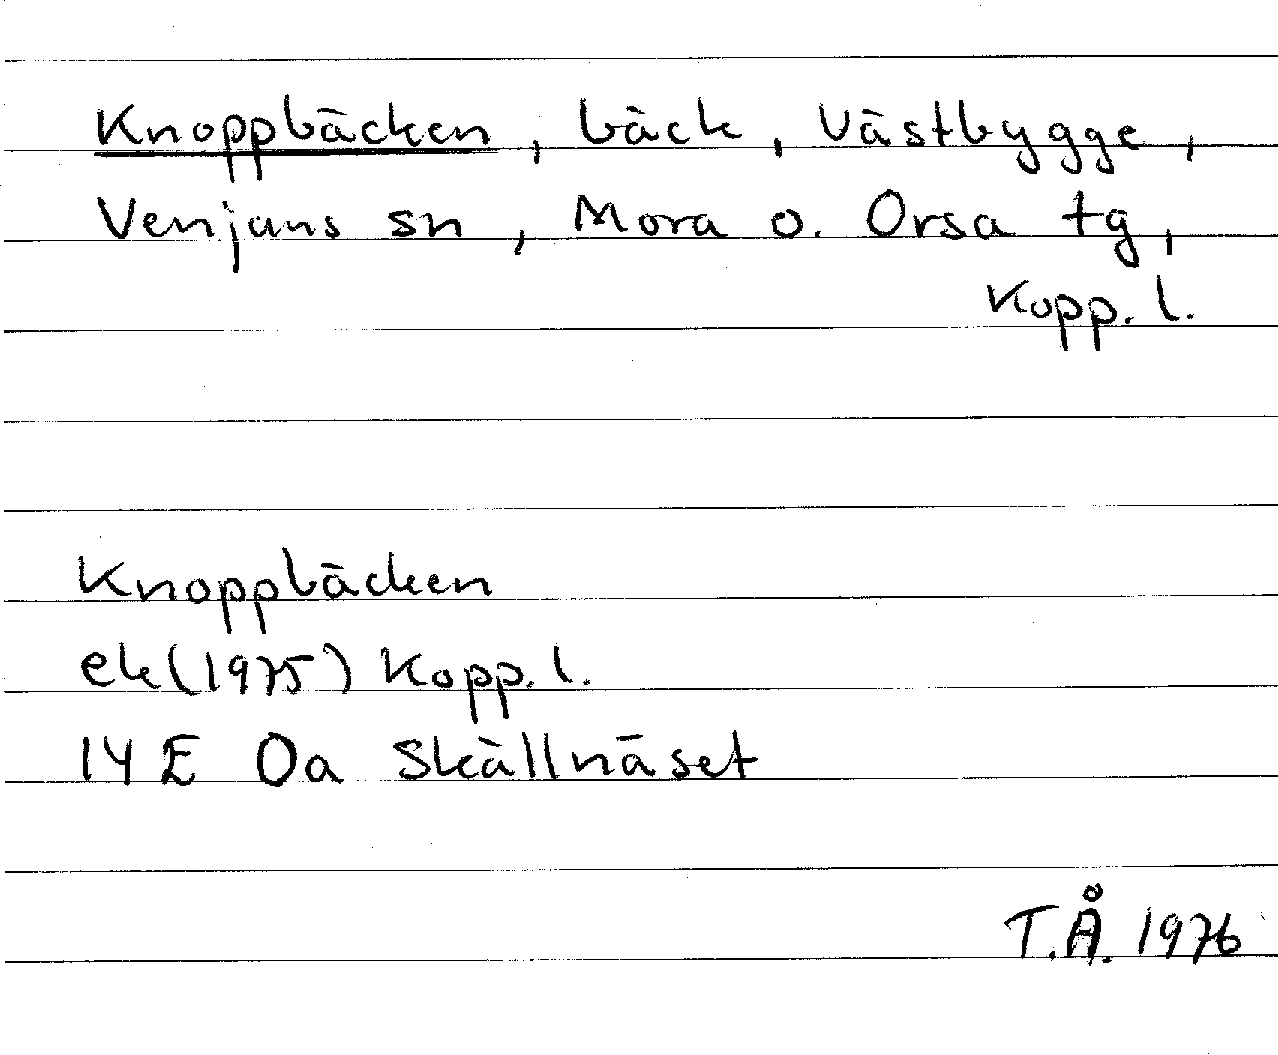 Knoppbäcken, bäck, Västbygge,
Venjans sn, Mora o. Orsa tg,
Kopp. l.
Knoppbäcken
ek(1975) Kopp. l.
14 E 0a Skällnäset
T.Å. 1976